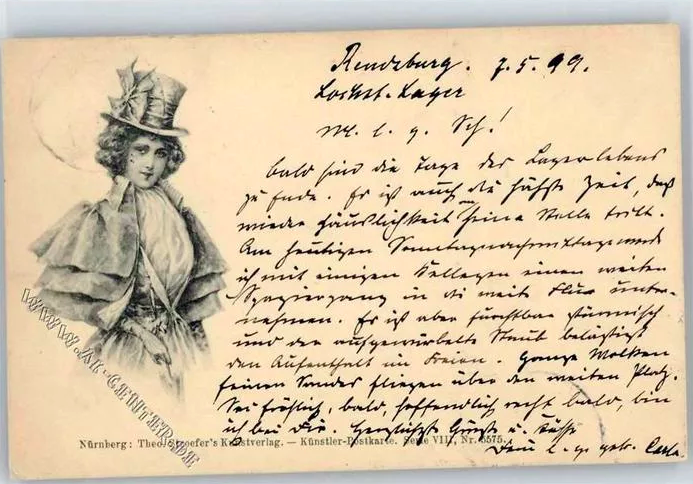 Rendsburg. 7.5.99.
Lockst. Lager
M. l. g. Sch!
bald sind die Tage des Lagerlebens
zu Ende. Es ist auch die höchste Zeit, daß
wieder Häuslichkeit an seine Stelle tritt.
Am heutigen Sonntagnachmittage werde
ich mit einigen Kollegen einen weiten
Spaziergang in die weite Flur unter-
nehmen. Es ist aber furchtbar stürmisch
und der aufgewirbelte Staub belästigt
den Aufenthalt im Freien. Ganze Wolken
feinen Sandes fliegen über den weiten Platz.
Sei fröhlich, bald, hoffentlich recht bald, bin
ich bei Dir. Herzlichste Grüße u. Küsse
Dein l. g. getr. Carl
Nürnberg: Theo. Stroefer's Kunstverlag. — Künstler-Postkarte. Serie VIII, Nr. 5575.
WWW.AK-CENTER.DE